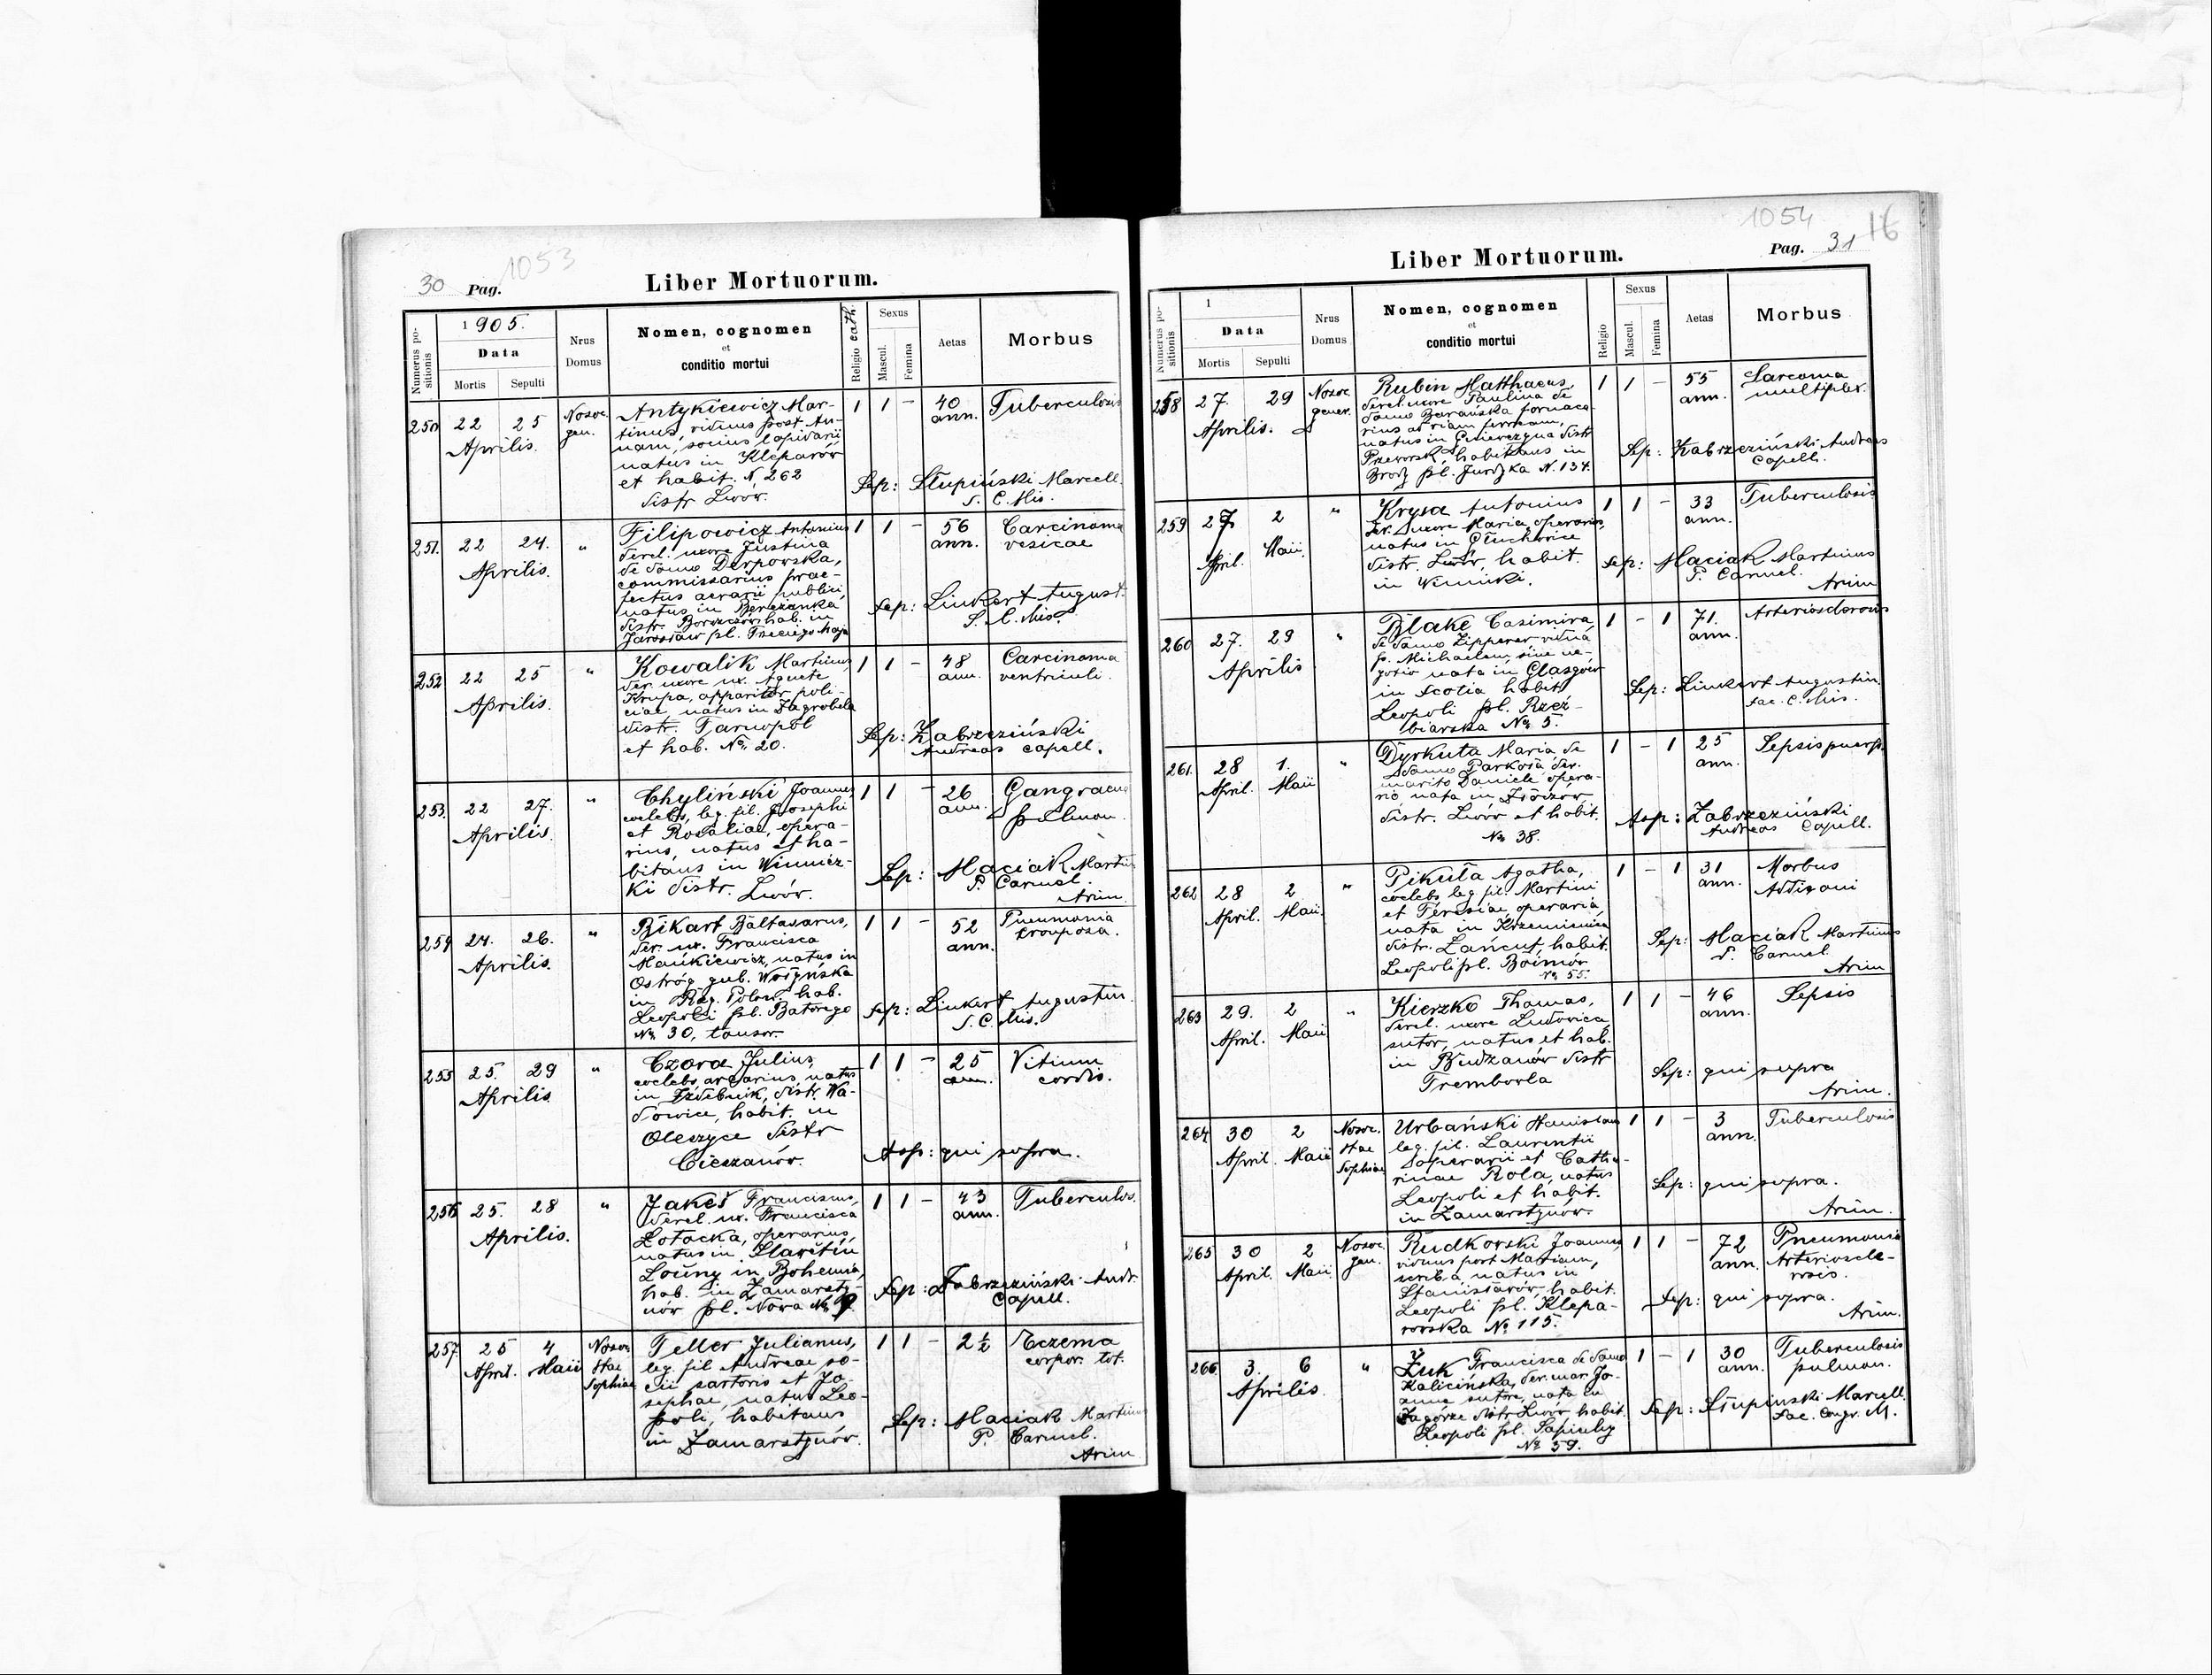 1053
30 Pag.
Liber Mortuorum.
Numerus positionis
1905.
Data
Mortis
Sepulti
Nrus Domus
Nomen, cognomen
et
conditio mortui
Religio cath.
Sexus
Mascul.
Femina
Aetas
Morbus
250 22 25 Aprilis. Nosoc. gen.
Antykiewicz Mar-
tinus, viduus post An-
nam, socius lapidarii
natus in Kleparów
et habit. N. 262
distr Lwów.
1 1 - 40 ann. Tuberculosis
Sep: Słupiński Marcell.
S. C. Mis.
251. 22 24. Aprilis. "
Filipowicz Antonius
derel. uxore Justina
de domo Derpowska,
commissarius prae-
fectus aerarii publici,
natus in
distr. Borszczów hab. in
Jarosław pl. Trzeciego Maja
1 1 - 56 ann. Carcinoma
vesicae
Sep: Linkert August.
S. C. Mis.
252 22 25 Aprilis. "
Kowalik Martinus
der. uxore n. Agnete
Krupa, apparitor poli-
ciae natus in Zagrobela
distr. Tarnopol
et hab. No. 20.
1 1 - 48 ann. Carcinoma
ventriculi.
Sep: Zabrzeziński
Andreas capell.
253. 22 27. Aprilis. "
Chyliński Joannes
coelebs, leg. fil. Josephi
et Rosaliae, opera-
rius, natus et ha-
bitans in Winnicz-
ki distr. Lwów.
1 1 - 26 ann. Gangraena
pulmon.
Sep: Maciak Martin
P. Carmel.
Arim.
254 24. 26. Aprilis. "
Bikart Baltasarus,
der. ux. Francisca
Mańkiewicz, natus in
Ostróg gub. Wołyńska
in Reg. Polon. hab.
Leopoli pl. Batorego
No. 30, tonsor.
1 1 - 52 ann. Pneumonia
crouposa.
Sep: Linkert Augustin.
S. C. Mis.
255 25. 29 Aprilis. "
Czora Julius,
coelebs, natus
in Izdebnik, distr. Wa-
dowice, habit. in
Oleszyce distr
Cieszanów.
1 1 - 25 ann. Vitium
cordis.
Asp: qui supra.
256 25. 28 Aprilis. "
Jakeš Franciscus,
derel. ux. Francisca
Zoťacka, operarius,
natus in Slavětín
Louny in Bohemia,
hab. in Zamarsty-
nów pl. Nowa No. 9
1 1 - 43 ann. Tuberculos.
Sep: Zabrzeziński Andr.
Capell.
257. 25 April. 4 Maii Nosoc. Stae Sophiae
Teller Julianus,
leg. fil Andreae so-
cii sartoris et Jo-
sephae, natus Leo-
poli, habitans
in Zamarstynów.
1 1 - 2½ Eczema
corpor. tot.
Sep: Maciak Martinus
P. Carmel.
Arim
1054 16
Pag. 31
Liber Mortuorum.
Numerus positionis
1
Data
Mortis
Sepulti
Nrus Domus
Nomen, cognomen
et
conditio mortui
Religio
Sexus
Mascul.
Femina
Aetas
Morbus
258 27. 29 Aprilis. Nosoc. gener.
Rubin Matthaeus,
derel. uxore Paulina de
domo Barańska fornaca-
rius ad viam ferream,
natus in Gniewczyna distr
Przeworsk, habitans in
Brody pl. Jurdyka N. 134.
1 1 - 55 ann. Sarcoma
multiplex.
Sep: Zabrzeziński Andreas
Capell.
259 27. April. 2 Maii. "
Krysa Antonius
der. uxore Maria, operarius,
natus in Głuchowice
distr. Lwów, habit.
in Winniki.
1 1 - 33 ann. Tuberculosis
Sep: Maciak Martinus
P. Carmel.
Arim
260 27. 29 Aprilis "
Blake Casimira
de domo Zipperer vidua
p. Michaelem, sine ne-
gotio nata in Glasgów
in Scotia habit.
Leopoli pl. Rzeź-
biarska No. 5.
1 - 1 71. ann. Arteriosclerosis
Sep: Linkert Augustin.
Sac. C. Mis.
261. 28 April. 1. Maii "
Dyrkuta Maria de
domo Parkoła der.
marito Daniele opera-
rio nata in
distr. Lwów et habit.
No. 38.
1 - 1 25 ann. Sepsis puerp.
Asp: Zabrzeziński
Andreas Capell.
262 28 April. 2 Maii. "
Pikuła Agatha,
coelebs leg. fil. Martini
et Theresiae operaria
nata in Krzemienica
distr. Łańcut, habit.
Leopoli pl. Boimów
No. 55.
1 - 1 31 ann. Morbus
Addisoni
Sep: Maciak Martinus
P. Carmel
Arim
263 29. April. 2 Maii "
Kierzko Thomas,
derel. uxore Ludovica
sutor, natus et hab.
in Budzanów distr
Trembowla
1 1 - 46 ann. Sepsis
Sep: qui supra
Arim.
264 30 April 2 Maii Nosoc. Stae Sophiae
Urbański Stanislaus
leg. fil. Laurentii
operarii et Catha-
rinae Rola, natus
Leopoli et habit.
in Zamarstynów.
1 1 - 3 ann. Tuberculosis
Sep: qui supra.
Arim.
265 30 April. 2 Maii Nosoc. gen.
Rudkowski Joannes,
viduus post Mariam,
scriba natus in
Stanisławów, habit.
Leopoli pl. Klepa-
rowska No 115.
1 1 - 72 ann. Pneumonia
Arterioscle-
rosis.
Sep: qui supra.
Arim.
266 3. 6 Aprilis "
Żuk Francisca de domo
Kalicińska, der. mar. Jo-
anne sutore, nata in
Zagórze distr Lwów habit.
Leopoli pl. Sapiehy
No. 59.
1 - 1 30 ann. Tuberculosis
pulmon.
Sep: Słupinski Marcell.
Sac. Congr. M.